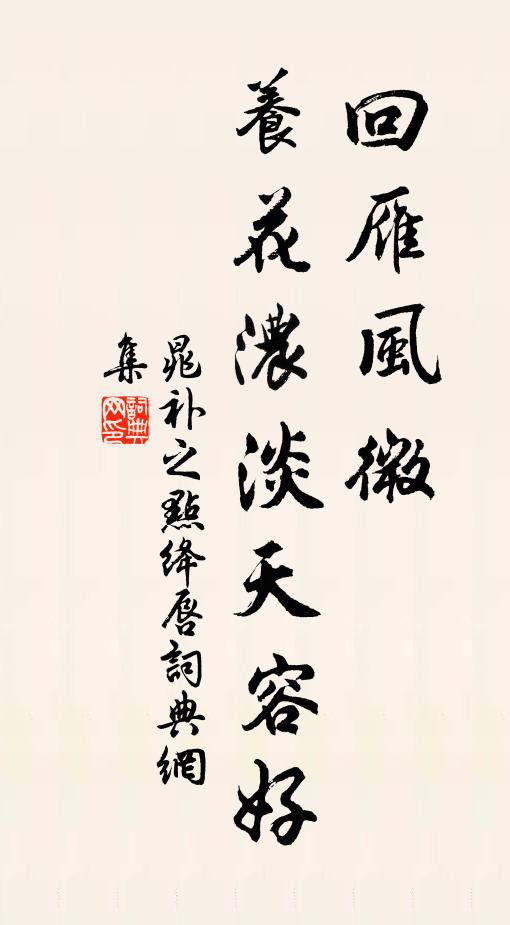 回雁風微
養花濃淡天容好
晁补之點絳唇詞典網
集
詞典
网印